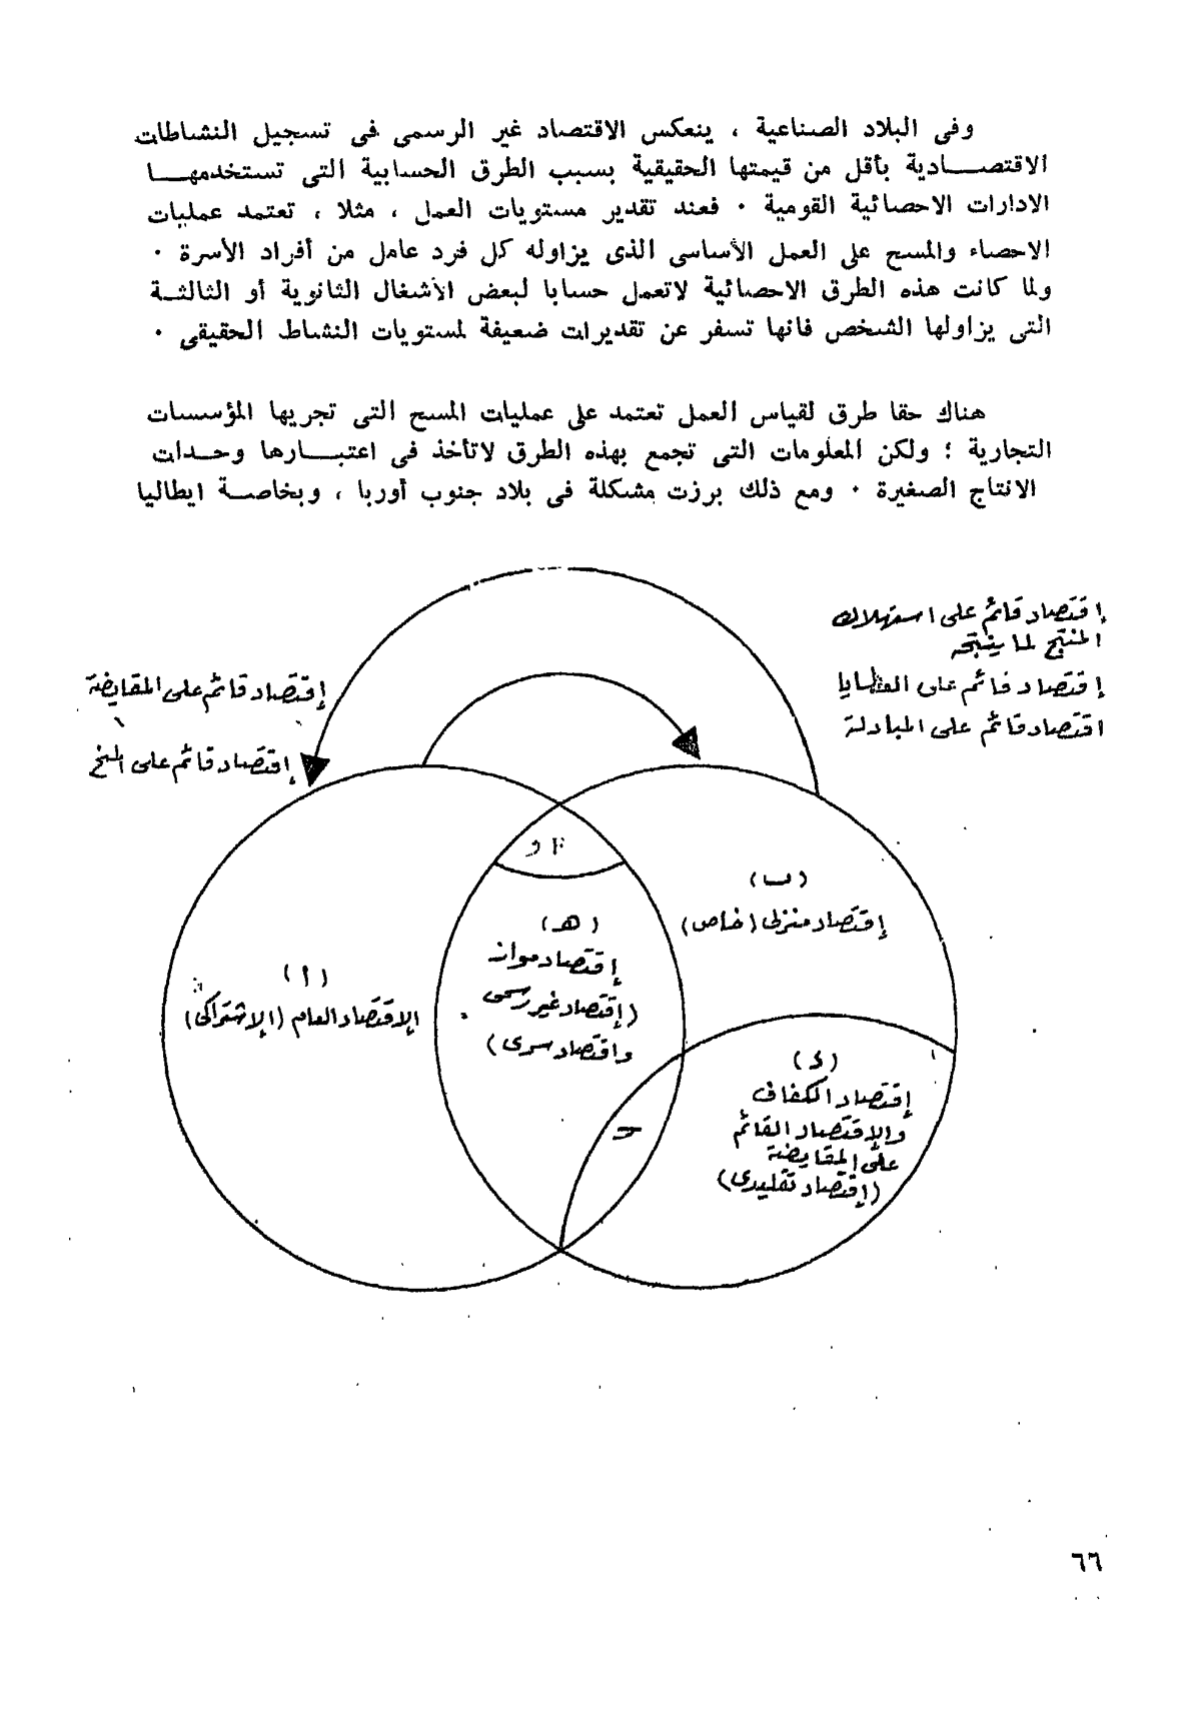 وفى البلاد الصناعية ، ينعكس الاقتصاد غير الرسمى فى تسجيل النشاطات
الاقتصـــادية بأقل من قيمتها الحقيقية بسبب الطرق الحسابية التى تستخدمهـــا
الادارات الاحصائية القومية ٠ فعند تقدير مستويات العمل ، مثلا ، تعتمد عمليات
الاحصاء والمسح على العمل الأساسى الذى يزاوله كل فرد عامل من أفراد الأسرة ٠
ولما كانت هذه الطرق الاحصائية لاتعمل حسابا لبعض الأشغال الثانوية أو الثالثـة
التى يزاولها الشخص فانها تسفر عن تقديرات ضعيفة لمستويات النشاط الحقيقى ٠
هناك حقا طرق لقياس العمل تعتمد على عمليات المسح التى تجريها المؤسسات
التجارية ؛ ولكن المعلومات التى تجمع بهذه الطرق لاتأخذ فى اعتبـــارها وحـدات
الانتاج الصغيرة ٠ ومع ذلك برزت مشكلة فى بلاد جنوب أوربا ، وبخاصـة ايطاليا
إقتصاد قائم على استهلاك
المنتج لما ينتجه
إقتصاد قائم على العطايا
اقتصاد قائم على المبادلة
إقتصاد قائم على المقايضة
إقتصاد قائم على المنح
و
(ب)
إقتصاد منزلى (خاص)
(هـ)
إقتصاد مواز
(إقتصاد غير رسمى
واقتصاد سرى)
(ا)
الاقتصاد العام (الإشتراكى)
(د)
إقتصاد الكفاف
والإقتصاد القائم
على المقايضة
(إقتصاد تقليدى)
حـ
٦٦